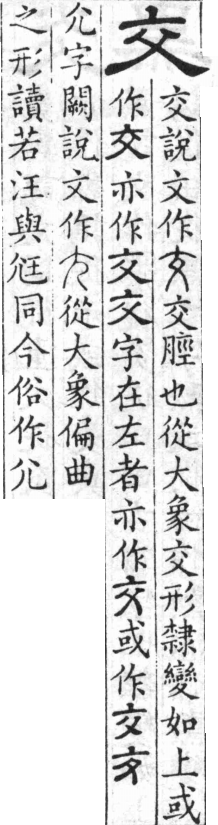 交
交說文作𡗕交脛也從大象交形隸變如上或
作交亦作交交字在左者亦作交或作交㐅
尣字闕說文作𡯁從大象偏曲
之形讀若汪與尪同今俗作尣